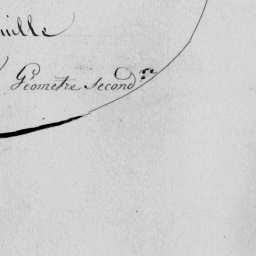 uille
Géometre second.re